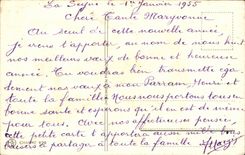 La Seyne le 1er Janvier 1955
Chère Tante Maryvonne
Au seuil de cette nouvelle année,
je viens t'apporter, au nom de nous huit
nos meilleurs vœux de bonne et heureuse
année. Tu voudras bien transmettre également
nos vœux à mon Parrain, Henri et
toute la famille. Nous nous portons tous en
forme santé et espérons qu'il en est de même
pour tous. Avec nos affectueuses pensées
cette petite carte t'apportera aussi mille bons
baisers à partager toute la famille